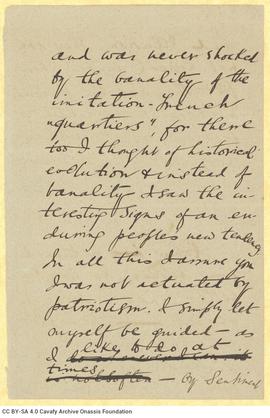 and was never shocked
by the banality of the
imitation-French
"quartiers", for there
too I thought of historical
evolution & instead of
banality I saw the in-
teresting signs of an en-
during peoples new tendency
In all this I assure you
I was not actuated by
patriotism. I simply let
myself be guided - as
I like to do at
times
- By Sentiment
CC BY-SA 4.0 Cavafy Archive Onassis Foundation